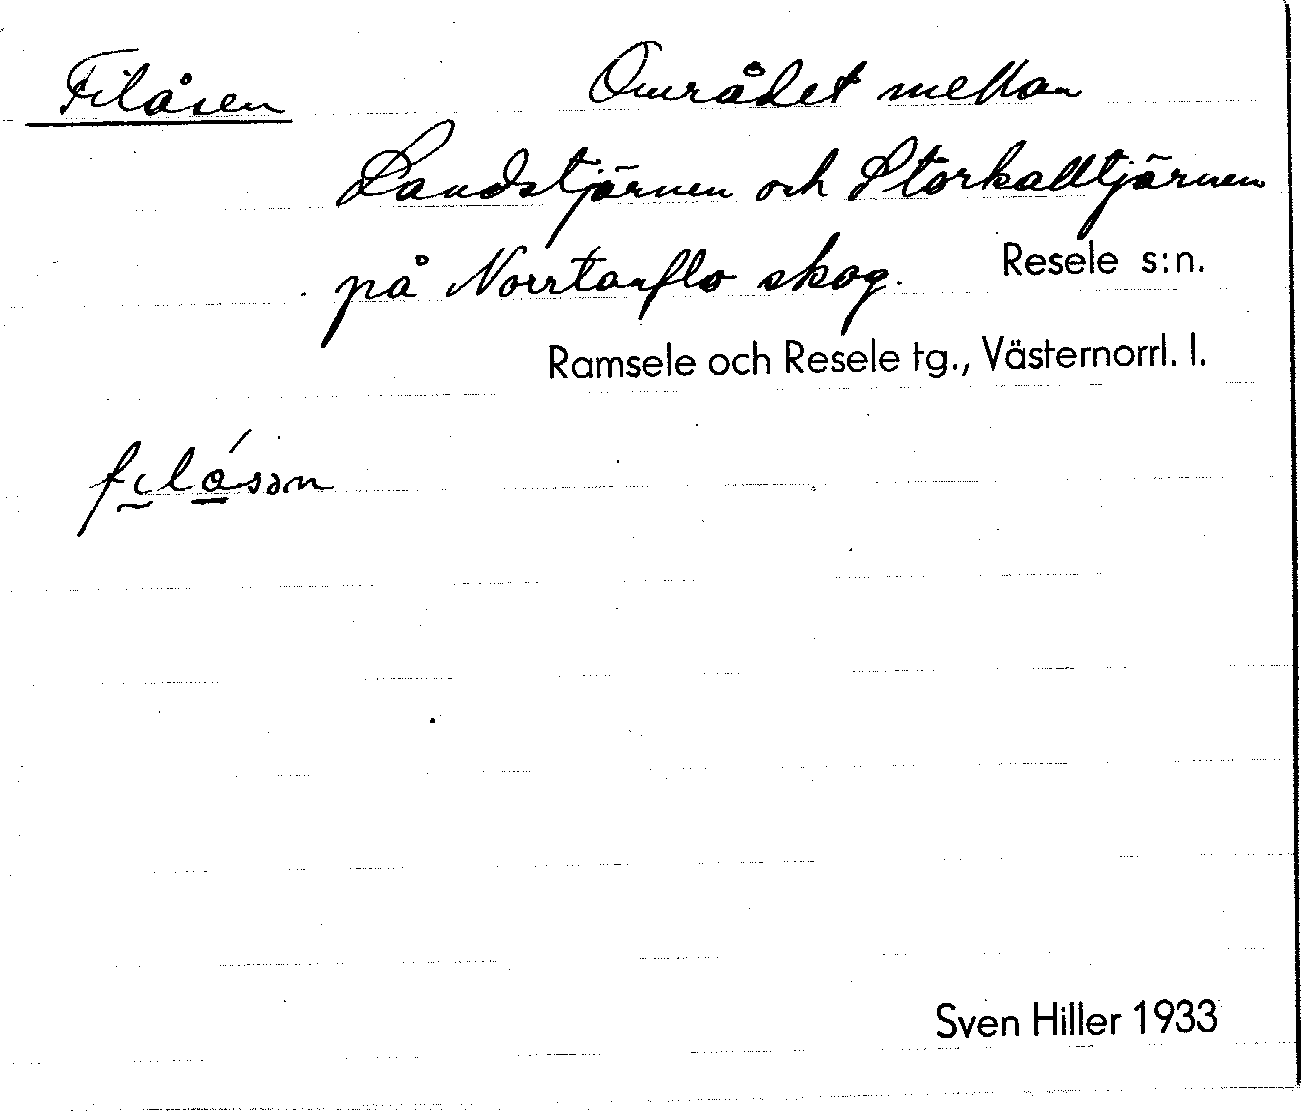 Filåsen Området mellan
Landstjärnen och Storkalltjärnen
på Norrtanflo skog. Resele s:n.
Ramsele och Resele tg., Västernorrl. l.
filåsən
Sven Hiller 1933